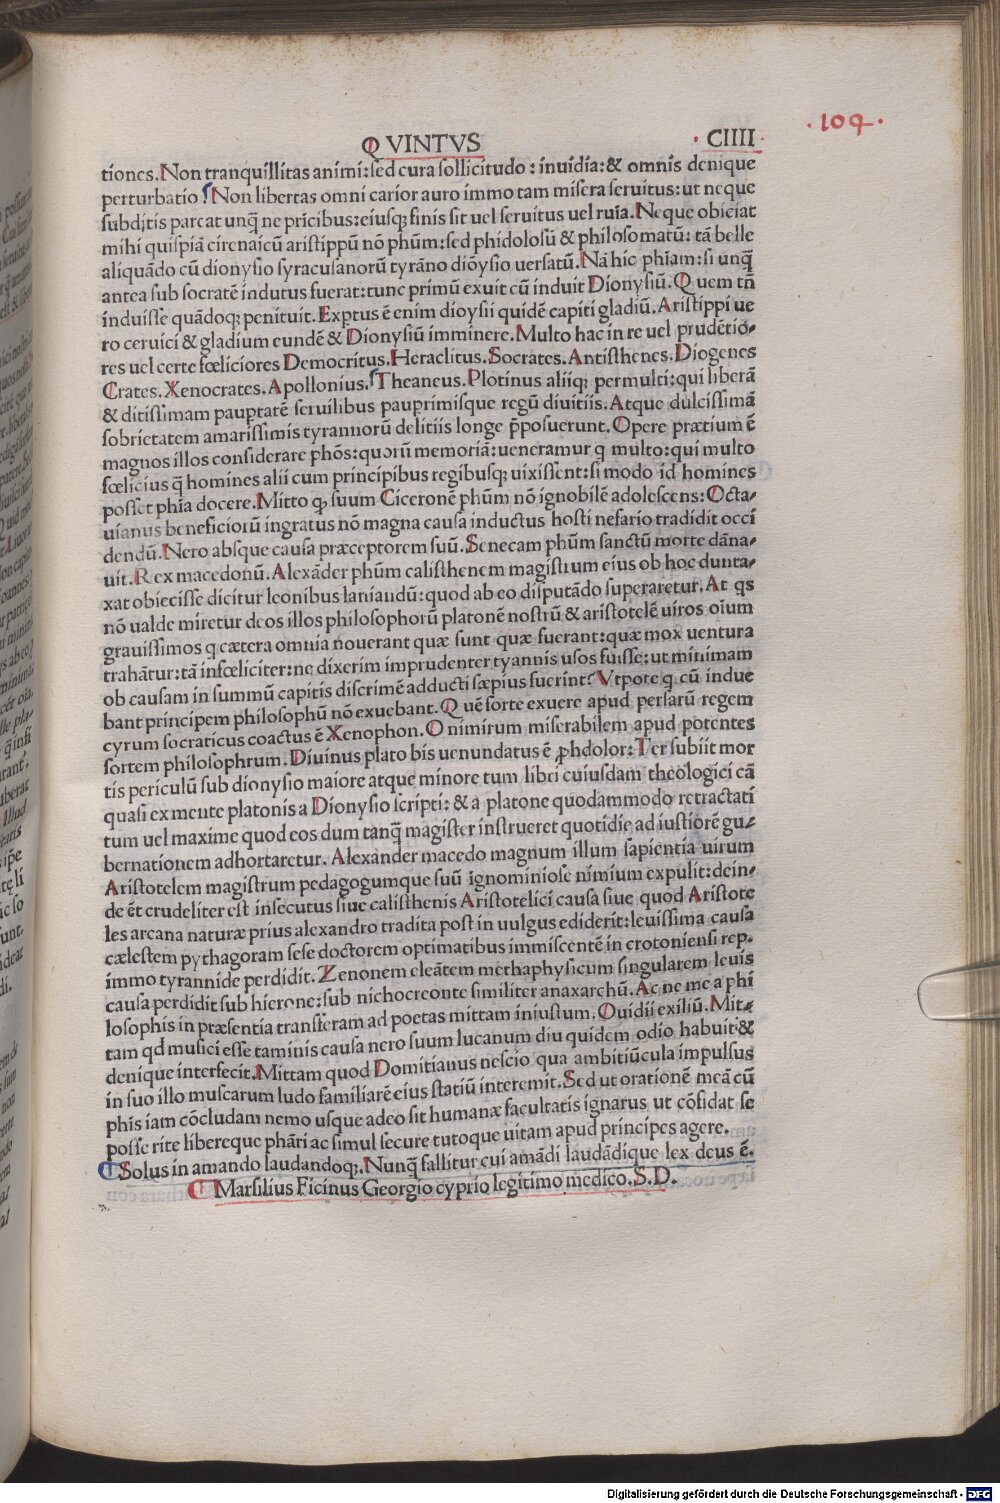 QVINTVS
· CIIII ·
· 104 ·
tiones. Non tranquillitas animi: sed cura sollicitudo: inuidia: & omnis denique
perturbatio. Non libertas omni carior auro immo tam misera seruitus: ut neque
subditis parcat unq̃ ne pricibus: eiusq; finis sit uel seruitus uel ruia. Neque obiciat
mihi quispiã cirenaicũ aristippũ nõ phũm: sed phidolosũ & philosomatũ: tã belle
aliquãdo cũ dionysio syracusanorũ tyrãno diõysio uersatũ. Nã hic phiam: si unq̃
antea sub socratẽ indutus fuerat: tunc primũ exuit cũ induit Dionysiũ. Quem tñ
induisse quãdoq; penituit. Exptus ẽ enim dioysii quidẽ capiti gladiũ. Aristippi ue
ro ceruici & gladium eundẽ & Dionysiũ imminere. Multo hac in re uel prudẽtio-
res uel certe fœliciores Democritus. Heraclitus. Socrates. Antisthenes. Diogenes
Crates. Xenocrates. Apollonius. Theaneus. Plotinus aliiq; permulti: qui liberã
& ditissimam pauptatẽ seruilibus pauprimisque regũ diuitiis. Atque dulcissimã
sobrietatem amarissimis tyrannorũ delitiis longe p̃posuerunt. Opere prætium ẽ
magnos illos considerare phõs: quorũ memoriã: ueneramur q multo: qui multo
fœlicius q̃ homines alii cum principibus regibusq; uixissent: si modo id homines
posset phia docere. Mitto q; suum Ciceronẽ phũm nõ ignobilẽ adolescens: Octa-
uianus beneficiorũ ingratus nõ magna causa inductus hosti nefario tradidit occi
dendũ. Nero absque causa præceptorem suũ. Senecam phũm sanctũ morte dãna-
uit. Rex macedonũ. Alexãder phũm calisthenem magistrum eius ob hoc dunta-
xat obiecisse dicitur leonibus laniandũ: quod ab eo disputãdo superaretur. At qs
nõ ualde miretur deos illos philosophorũ platonẽ nostrũ & aristotelẽ uiros oium
grauissimos q cætera omnia nouerant quæ sunt quæ fuerant: quæ mox uentura
trahãtur: tã infœliciter: ne dixerim imprudenter tyannis usos fuisse: ut minimam
ob causam in summũ capitis discrimẽ adducti sæpius fuerint? Vtpote q cũ indue
bant principem philosophũ nõ exuebant. Quẽ sorte exuere apud persarũ regem
cyrum socraticus coactus ẽ Xenophon. O nimirum miserabilem apud potentes
sortem philosophrum. Diuinus plato bis uenundatus ẽ ꝓhdolor: Ter subiit mor
tis periculũ sub dionysio maiore atque minore tum libri cuiusdam theologici cã
quasi ex mente platonis a Dionysio scripti: & a platone quodammodo retractati
tum uel maxime quod eos dum tanq̃ magister instrueret quotidie ad iustiorẽ gu-
bernationem adhortaretur. Alexander macedo magnum illum sapientia uirum
Aristotelem magistrum pedagogumque suũ ignominiose nimium expulit: dein-
de ẽt crudeliter est insecutus siue calisthenis Aristotelici causa siue quod Aristote
les arcana naturæ prius alexandro tradita post in uulgus ediderit: leuissima causa
cælestem pythagoram sese doctorem optimatibus immiscentẽ in crotoniensi rep.
immo tyrannide perdidit. Zenonem eleãtem methaphysicum singularem leuis
causa perdidit sub hierone: sub nichocreonte similiter anaxarchũ. Ac ne me a phi
losophis in præsentia transferam ad poetas mittam iniustum. Ouidii exiliũ. Mit-
tam qd musici esse taminis causa nero suum lucanum diu quidem odio habuit &
denique interfecit. Mittam quod Domitianus nescio qua ambitiũcula impulsus
in suo illo muscarum ludo familiarẽ eius statiũ interemit. Sed ut orationẽ meã cũ
phis iam cõcludam nemo usque adeo sit humanæ facultatis ignarus ut cõfidat se
posse rite libereque phãri ac simul secure tutoque uitam apud principes agere.
Solus in amando laudandoq;. Nunq̃ fallitur cui amãdi laudãdique lex deus ẽ.
Marsilius Ficinus Georgio cyprio legitimo medico. S.D.
Digitalisierung gefördert durch die Deutsche Forschungsgemeinschaft - DFG